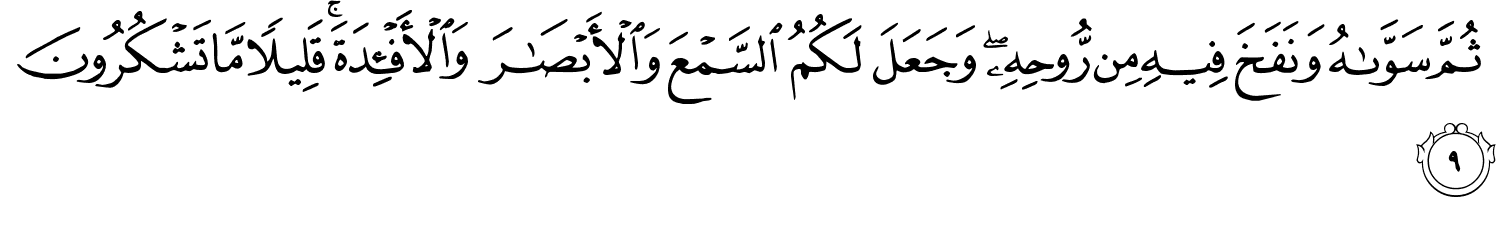 ثُمَّ سَوَّىٰهُ وَنَفَخَ فِيهِ مِن رُّوحِهِۦ ۖ وَجَعَلَ لَكُمُ ٱلسَّمْعَ وَٱلْأَبْصَـٰرَ وَٱلْأَفْـِٔدَةَ ۚ قَلِيلًا مَّا تَشْكُرُونَ
٩